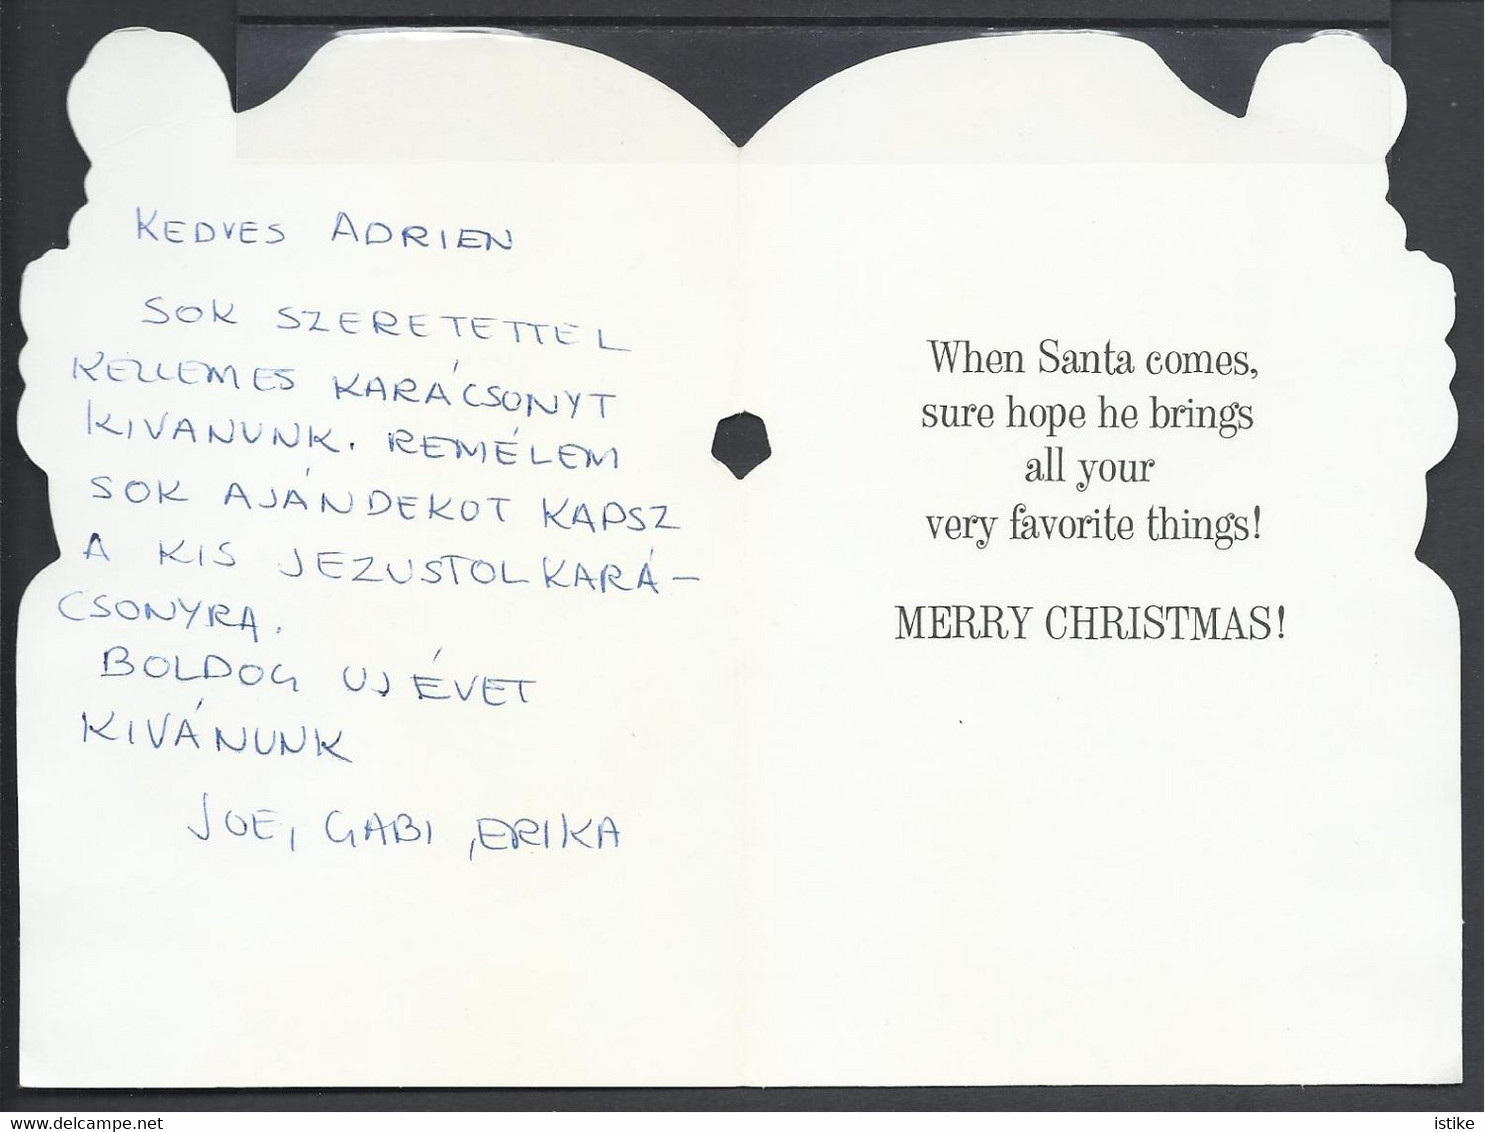 KEDVES ADRIEN
SOK SZERETETTEL
KELLEMES KARÁCSONYT
KIVANUNK. REMÉLEM
SOK AJÁNDEKOT KAPSZ
A KIS JEZUSTOL KARÁ-
CSONYRA.
BOLDOG UJ ÉVET
KIVÁNUNK
JOE, GABI, ERIKA
When Santa comes,
sure hope he brings
all your
very favorite things!
MERRY CHRISTMAS!
www.delcampe.net
istike